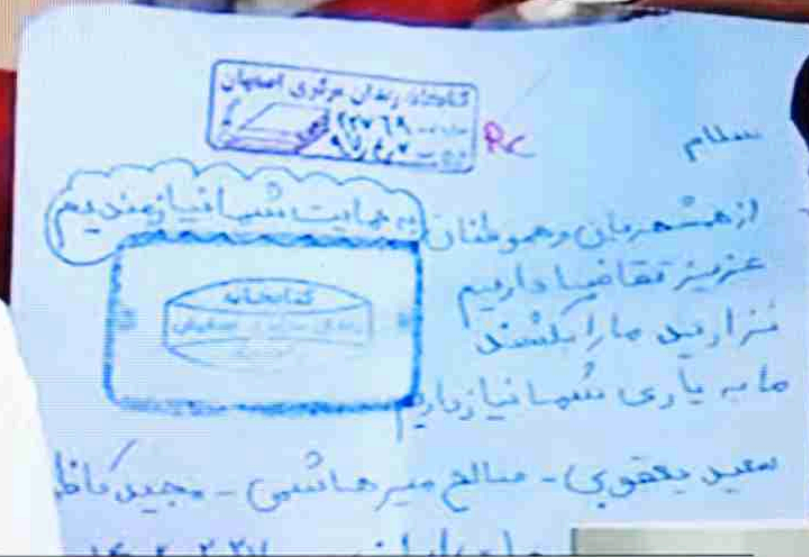 کتابخانه زندان مرکزی اصفهان
سلام
از همشهریان و هموطنان
عزیز تقاضا داریم
نزارید ما را بکشند
ما به یاری شما نیاز داریم
به حمایت شما نیازمندیم
کتابخانه
زندان مرکزی اصفهان
سعید یعقوبی - صالح میرهاشمی - مجید کاظ
Rc